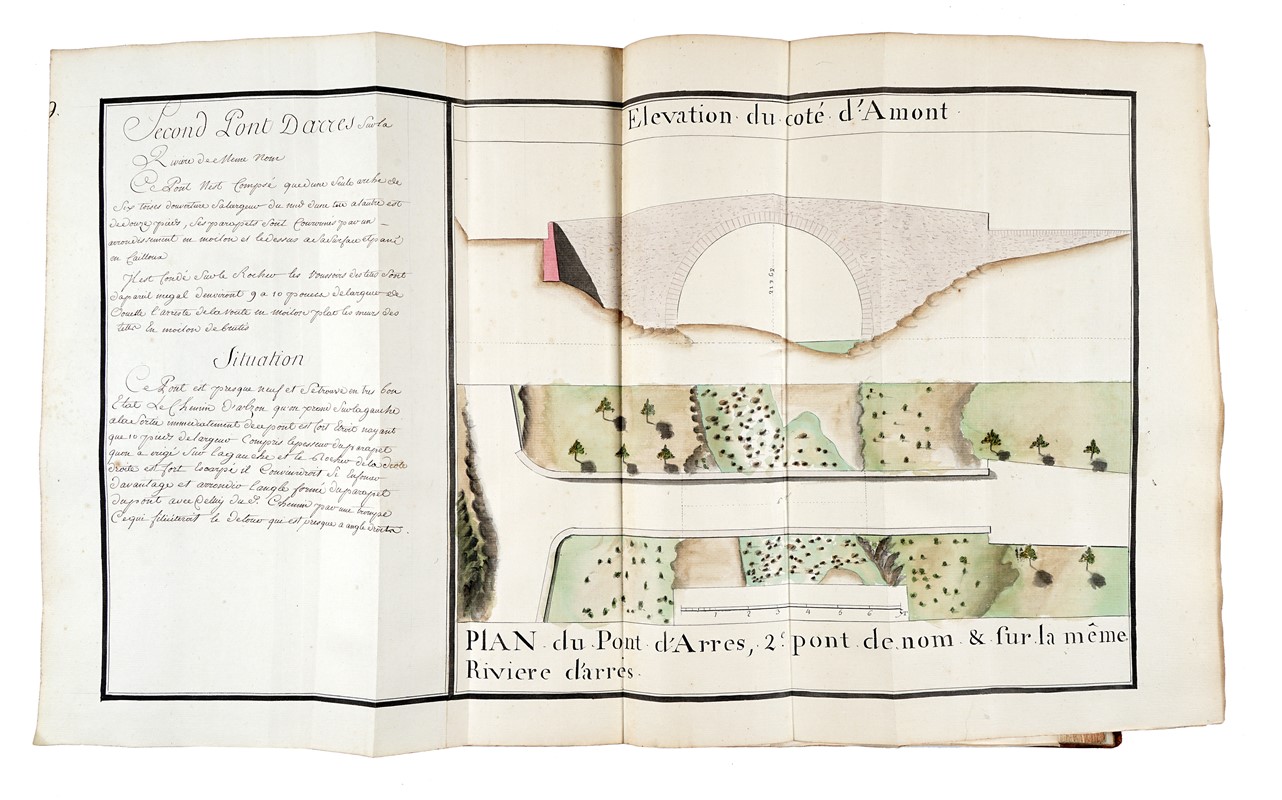 9.
Second Pont Darres Sur la
Riviere de Meme Nom
Ce Pont Nest Composé que d'une Seule arche de
Six toises douverture Salargeur du nud d'une tete a lautre est
de douze pieds, Ses parapets Sont Couronnés par un
arrondissement en moilon et le dessus
en Cailloux
Il est fondé Sur le Rocher les Voussoirs des tetes Sont
d'apareil inegal denviront 9 a 10 pouces de largeur de
Douelle l'arreste de la voute en moilon plat les murs des
tettes En moilon de brutis
Situation
Ce Pont est presque neuf et Se trouve en tres bon
Etat Le Chemin D'alzon qu'on prend Sur la gauche
a la Sortie immediatement de ce pont est fort Etroit n'ayant
que 10 pieds de largeur Compris lepesseur du parapet
qu'on a erigé Sur la gauche et le Rocher de la
droite est fort Escarpé il Conviendroit de
davantage et arrondir l'angle formé du parapet
du pont avec Celuy du d. Chemin par une trompe
Ce qui feliciteroit le detour qui est presque a angle droits.
Elevation du coté d'Amont
21.2.62
1 2 3 4 5 6
PlAN du Pont d'Arres, 2e. pont de nom & sur la même
Riviere d'arres.